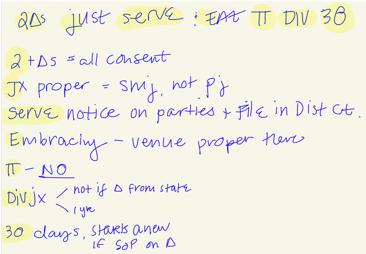 2Δs just serve : EAT π DIV 30
2 + Δs = all consent
Jx proper = SMJ, not PJ
Serve notice on parties + File in Dist Ct.
Embracing - venue proper there
π - NO
Div jx < not if Δ from state
1 yr
30 days, starts anew
if SOP on Δ